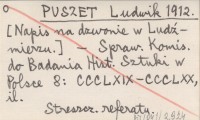 PUSZET Ludwik 1912.
[Napis na dzwonie w Ludź-
mierzu.] - Spraw. Komis.
do Badania Hist. Sztuki w
Polsce 8: CCCLXIX-CCCLXX,
il.
Streszcz. referatu.